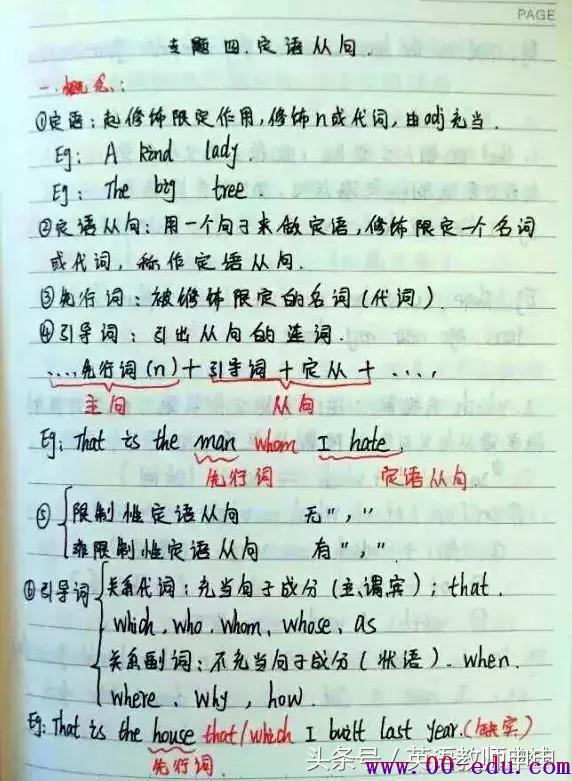 PAGE
专题四.定语从句.
一.概念:
①定语:起修饰限定作用,修饰n或代词,由adj充当.
Eg: A kind lady.
Eg: The big tree.
②定语从句:用一个句子来做定语,修饰限定一个名词
或代词,称作定语从句.
③先行词:被修饰限定的名词(代词).
④引导词:引出从句的连词.
....先行词(n)+引导词+定从+....,
主句 从句
Eg: That is the man whom I hate.
先行词 定语从句.
⑤ 限制性定语从句 无","
非限制性定语从句 有","
⑥引导词 关系代词:充当句子成分(主、谓宾); that.
which, who, whom, whose, as
关系副词:不充当句子成分(状语). when.
where, why, how.
Eg: That is the house that/which I built last year.(缺宾)
先行词.
头条号/英语教师申申
www.00-edu.com